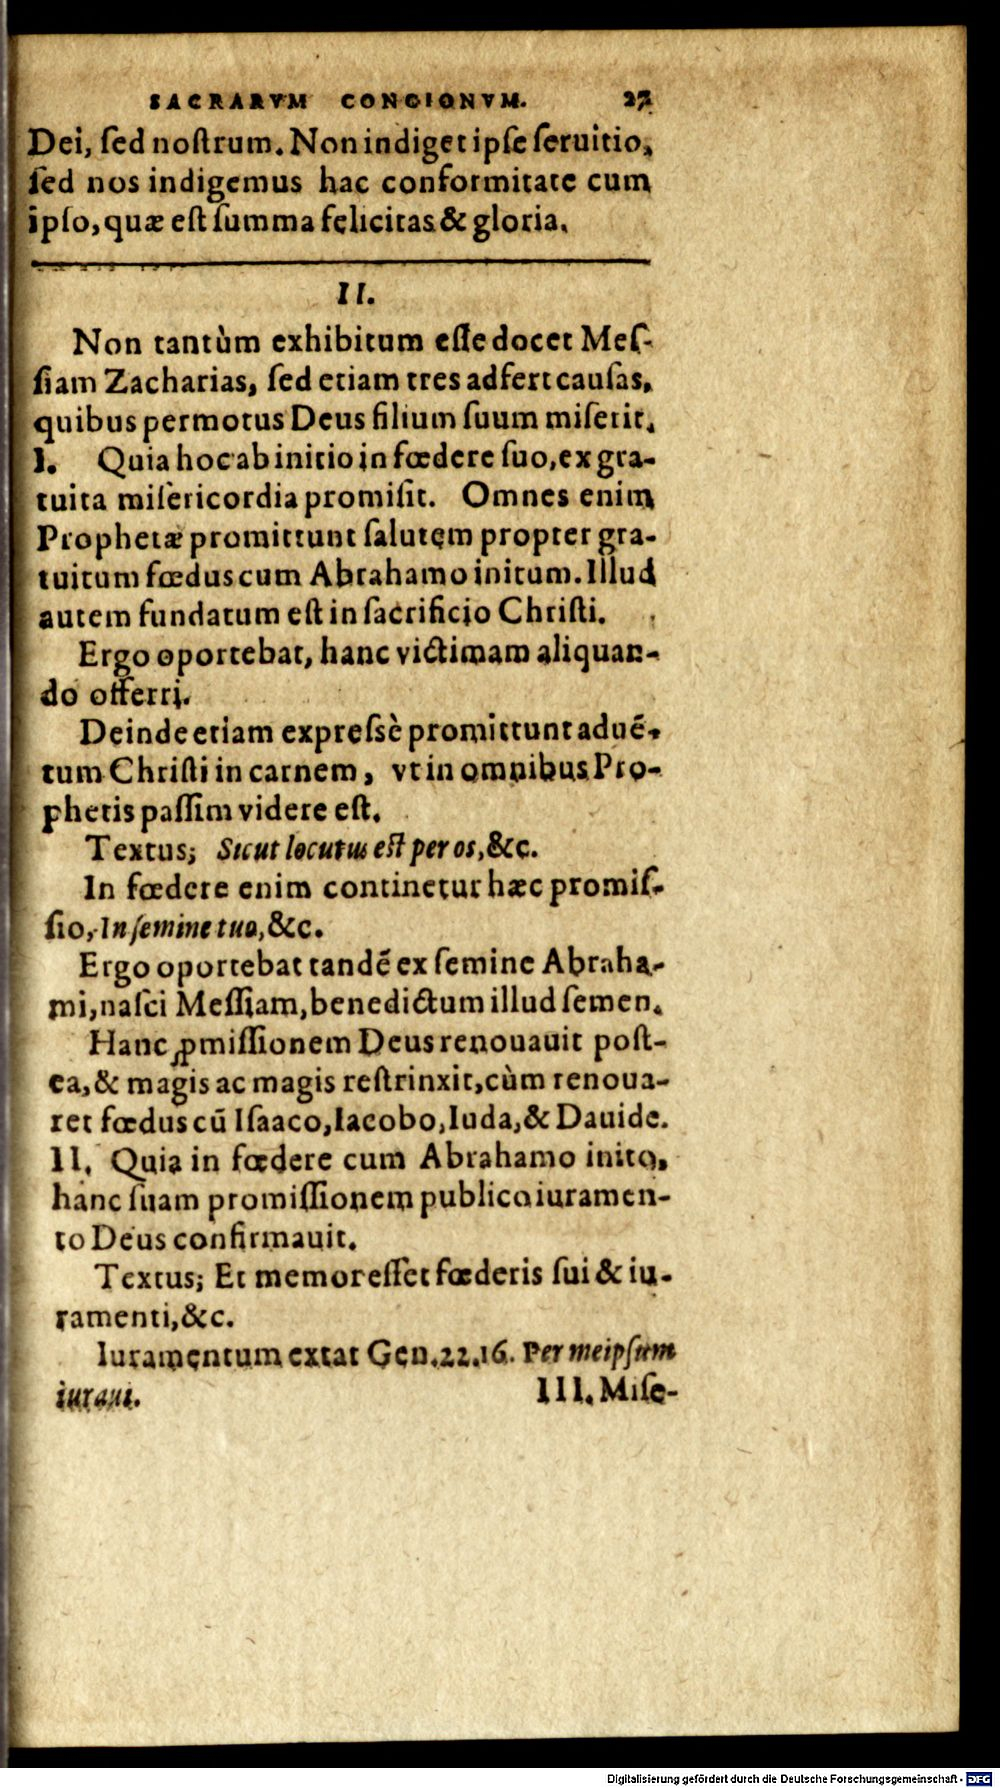 SACRARVM CONCIONVM. 27
Dei, ſed noſtrum. Non indiget ipſe ſeruitio,
ſed nos indigemus hac conformitate cum
ipſo, quæ eſt ſumma felicitas & gloria.
II.
Non tantùm exhibitum eſſe docet Meſ-
ſiam Zacharias, ſed etiam tres adfert cauſas,
quibus permotus Deus filium ſuum miſerit.
I. Quia hoc ab initio in fœdere ſuo, ex gra-
tuita miſericordia promiſit. Omnes enim
Prophetæ promittunt ſalutem propter gra-
tuitum fœdus cum Abrahamo initum. Illud
autem fundatum eſt in ſacrificio Chriſti.
Ergo oportebat, hanc victimam aliquan-
do offerri.
Deinde etiam expreſsè promittunt aduē-
tum Chriſti in carnem, vt in omnibus Pro-
phetis paſſim videre eſt.
Textus; Sicut locutus eſt per os, &c.
In fœdere enim continetur hæc promiſ-
ſio, In ſemine tuo, &c.
Ergo oportebat tandē ex ſemine Abraha-
mi, naſci Meſſiam, benedictum illud ſemen.
Hanc ꝓmiſſionem Deus renouauit poſt-
ea, & magis ac magis reſtrinxit, cùm renoua-
ret fœdus cū Iſaaco, Iacobo, Iuda, & Dauide.
II. Quia in fœdere cum Abrahamo inito,
hanc ſuam promiſſionem publico iuramen-
to Deus confirmauit.
Textus; Et memor eſſet fœderis ſui & iu-
ramenti, &c.
Iuramentum extat Gen. 22. 16. Per meipſum
iuraui. III. Miſe-
Digitalisierung gefördert durch die Deutsche Forschungsgemeinschaft - DFG